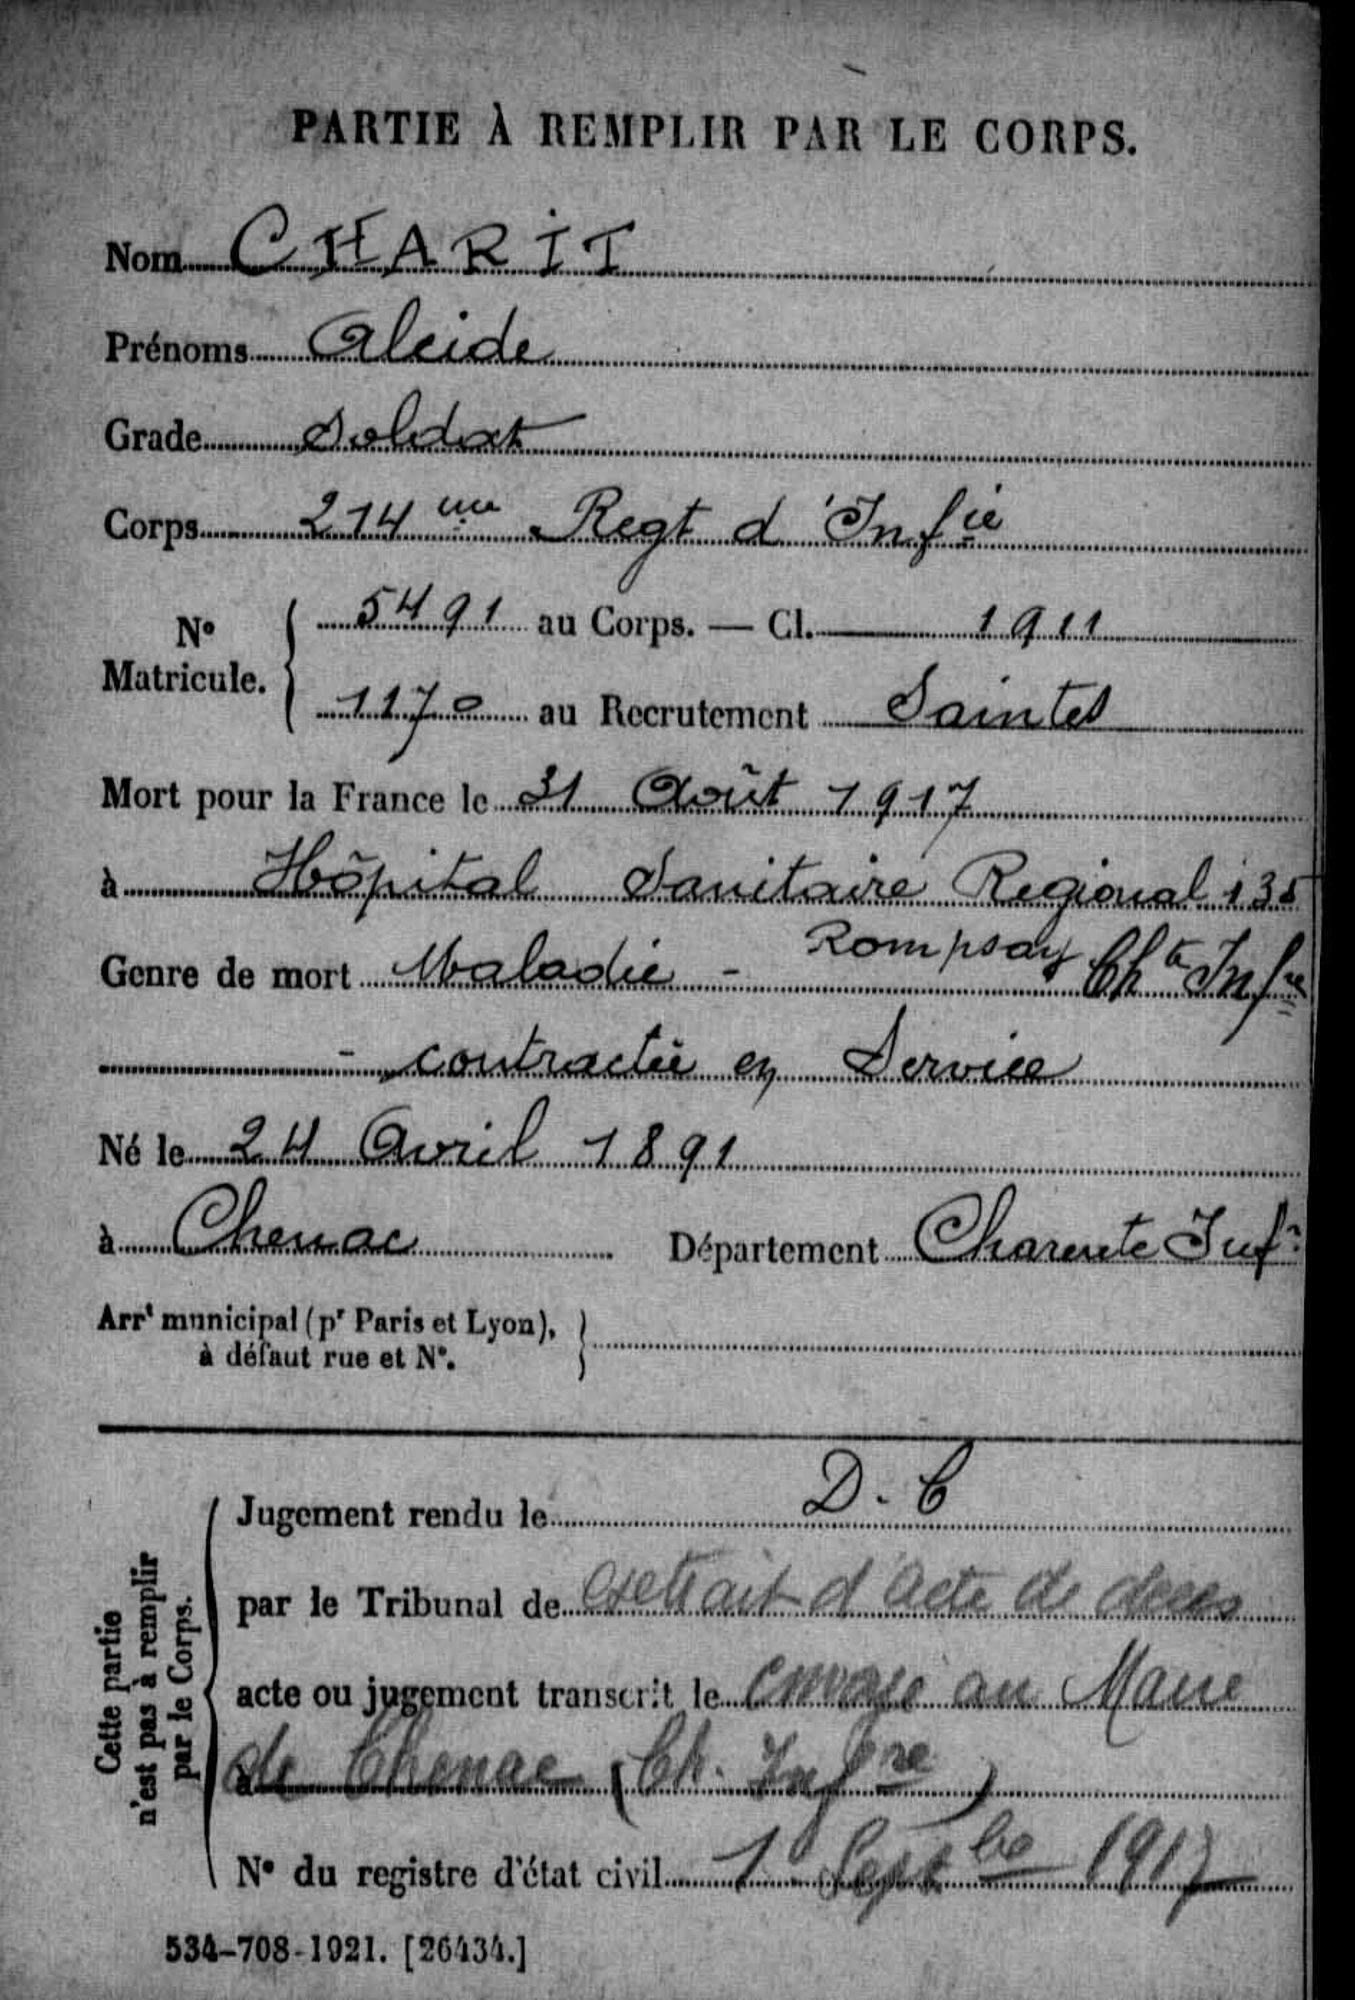 PARTIE À REMPLIR PAR LE CORPS.
Nom CHARIT
Prénoms Alcide
Grade Soldat
Corps 214eme Regt d'Infie
N° Matricule. 5491 au Corps. — Cl. 1911
1170 au Recrutement Saintes
Mort pour la France le 31 Août 1917
à Hôpital Sanitaire Regional 135
Rompsay Chte Infre
Genre de mort Maladie -
- contractée en Service
Né le 24 Avril 1891
à Chenac Département Charente Infr
Arrt municipal (pr Paris et Lyon),
à défaut rue et N°.
Cette partie
n'est pas à remplir
par le Corps.
Jugement rendu le D. C
par le Tribunal de extrait d'acte de deces
acte ou jugement transcrit le envoyé au Maire
à de Chenac (Ch. Infre)
N° du registre d'état civil 1 Septbe 1917
534-708-1921. [26434.]